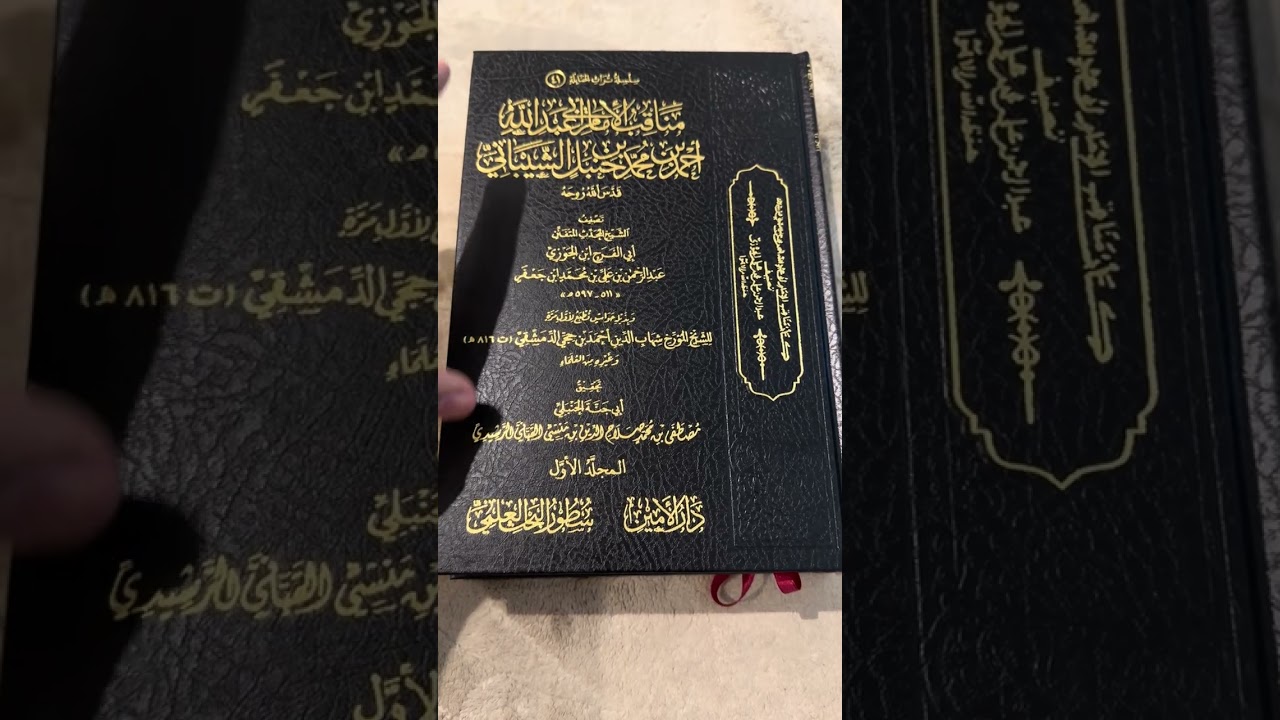 سلسلة تراث الحنابلة (٤١)
مناقب الإمام أبي عبد الله
أحمد بن محمد بن حنبل الشيباني
قدس الله روحه
تصنيف
الشيخ المحدث المتفنن
أبي الفرج ابن الجوزي
عبد الرحمن بن علي بن محمد ابن جعفر
«٥١١ - ٥٩٧ هـ»
وبذيله حواش تطبع لأول مرة
للشيخ المؤرخ شهاب الدين أحمد بن حجي الدمشقي (ت ٨١٦ هـ)
وغيره من العلماء
تحقيق
أبي جنة الحنبلي
مصطفى بن محمد صلاح الدين بن منسي القباني الرشيدي
المجلد الأول
دار الأمين
سطور البحث العلمي